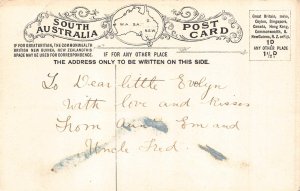 SOUTH AUSTRALIA
W.A.
S.A.
N.S.W.
POST CARD
Great Britain, India,
Ceylon, Singapore,
Canada, Hong Kong,
Commonwealth, &
NewGuinea, N.Z.
1D
ANY OTHER PLACE
1½D
IF FOR GREAT BRITAIN, THE COMMONWEALTH
BRITISH NEW GUINEA, NEW ZEALAND THIS
SPACE MAY BE USED FOR CORRESPONDENCE.
IF FOR ANY OTHER PLACE
THE ADDRESS ONLY TO BE WRITTEN ON THIS SIDE.
To Dear little Evelyn
With love and Kisses
From Aunt Em and
Uncle Fred.